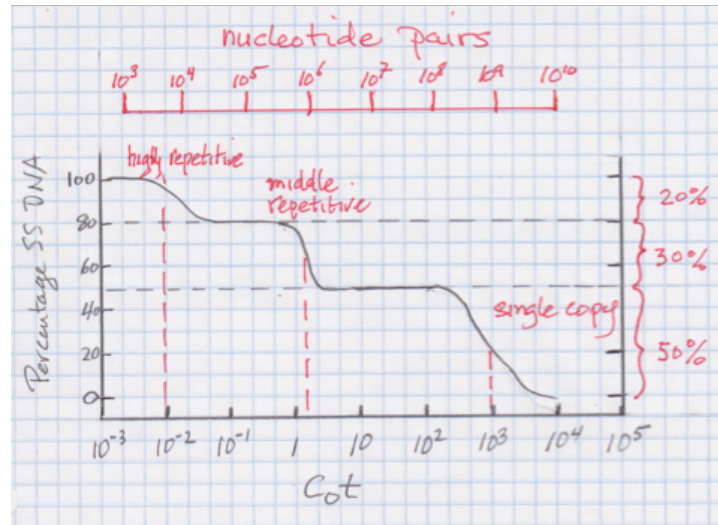 nucleotide pairs
10³ 10⁴ 10⁵ 10⁶ 10⁷ 10⁸ 10⁹ 10¹⁰
highly repetitive
middle
repetitive
single copy
Percentage SS DNA
100
80
60
40
20
0
20%
30%
50%
10⁻³ 10⁻² 10⁻¹ 1 10 10² 10³ 10⁴ 10⁵
C₀t